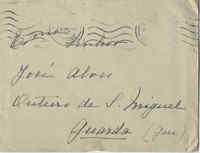 Exmo Senhor
José Alves
Outeiro de S. Miguel
Guarda